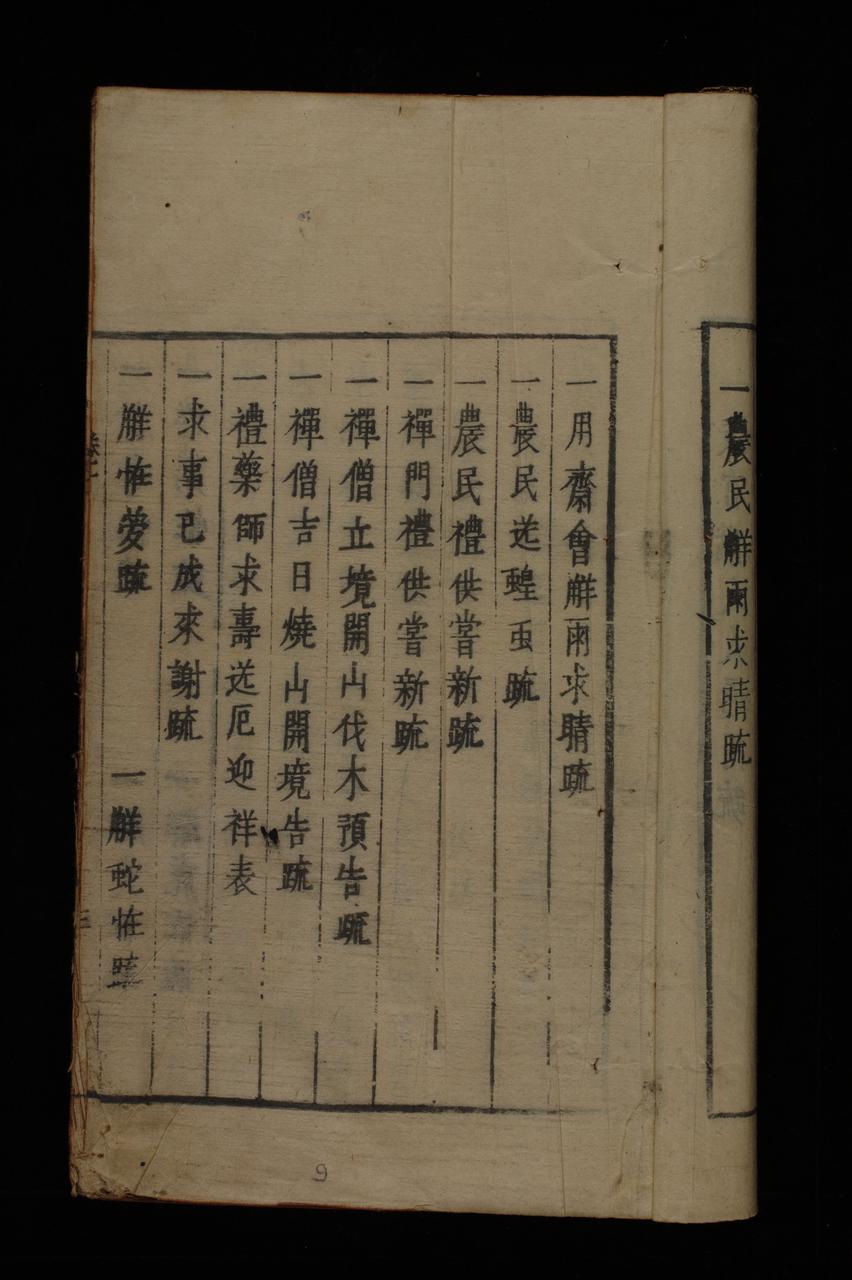 一農民觧雨求晴䟽
一用齋會觧雨求晴䟽
一農民送蝗虫䟽
一農民禮供嘗新䟽
一禪門禮供嘗新䟽
一禪僧立境開山伐木預告䟽
一禪僧吉日燒山開境告䟽
一禮藥師求壽送厄迎祥表
一求事已成來謝䟽
一觧恠夢䟽 一觧蛇恠䟽
9